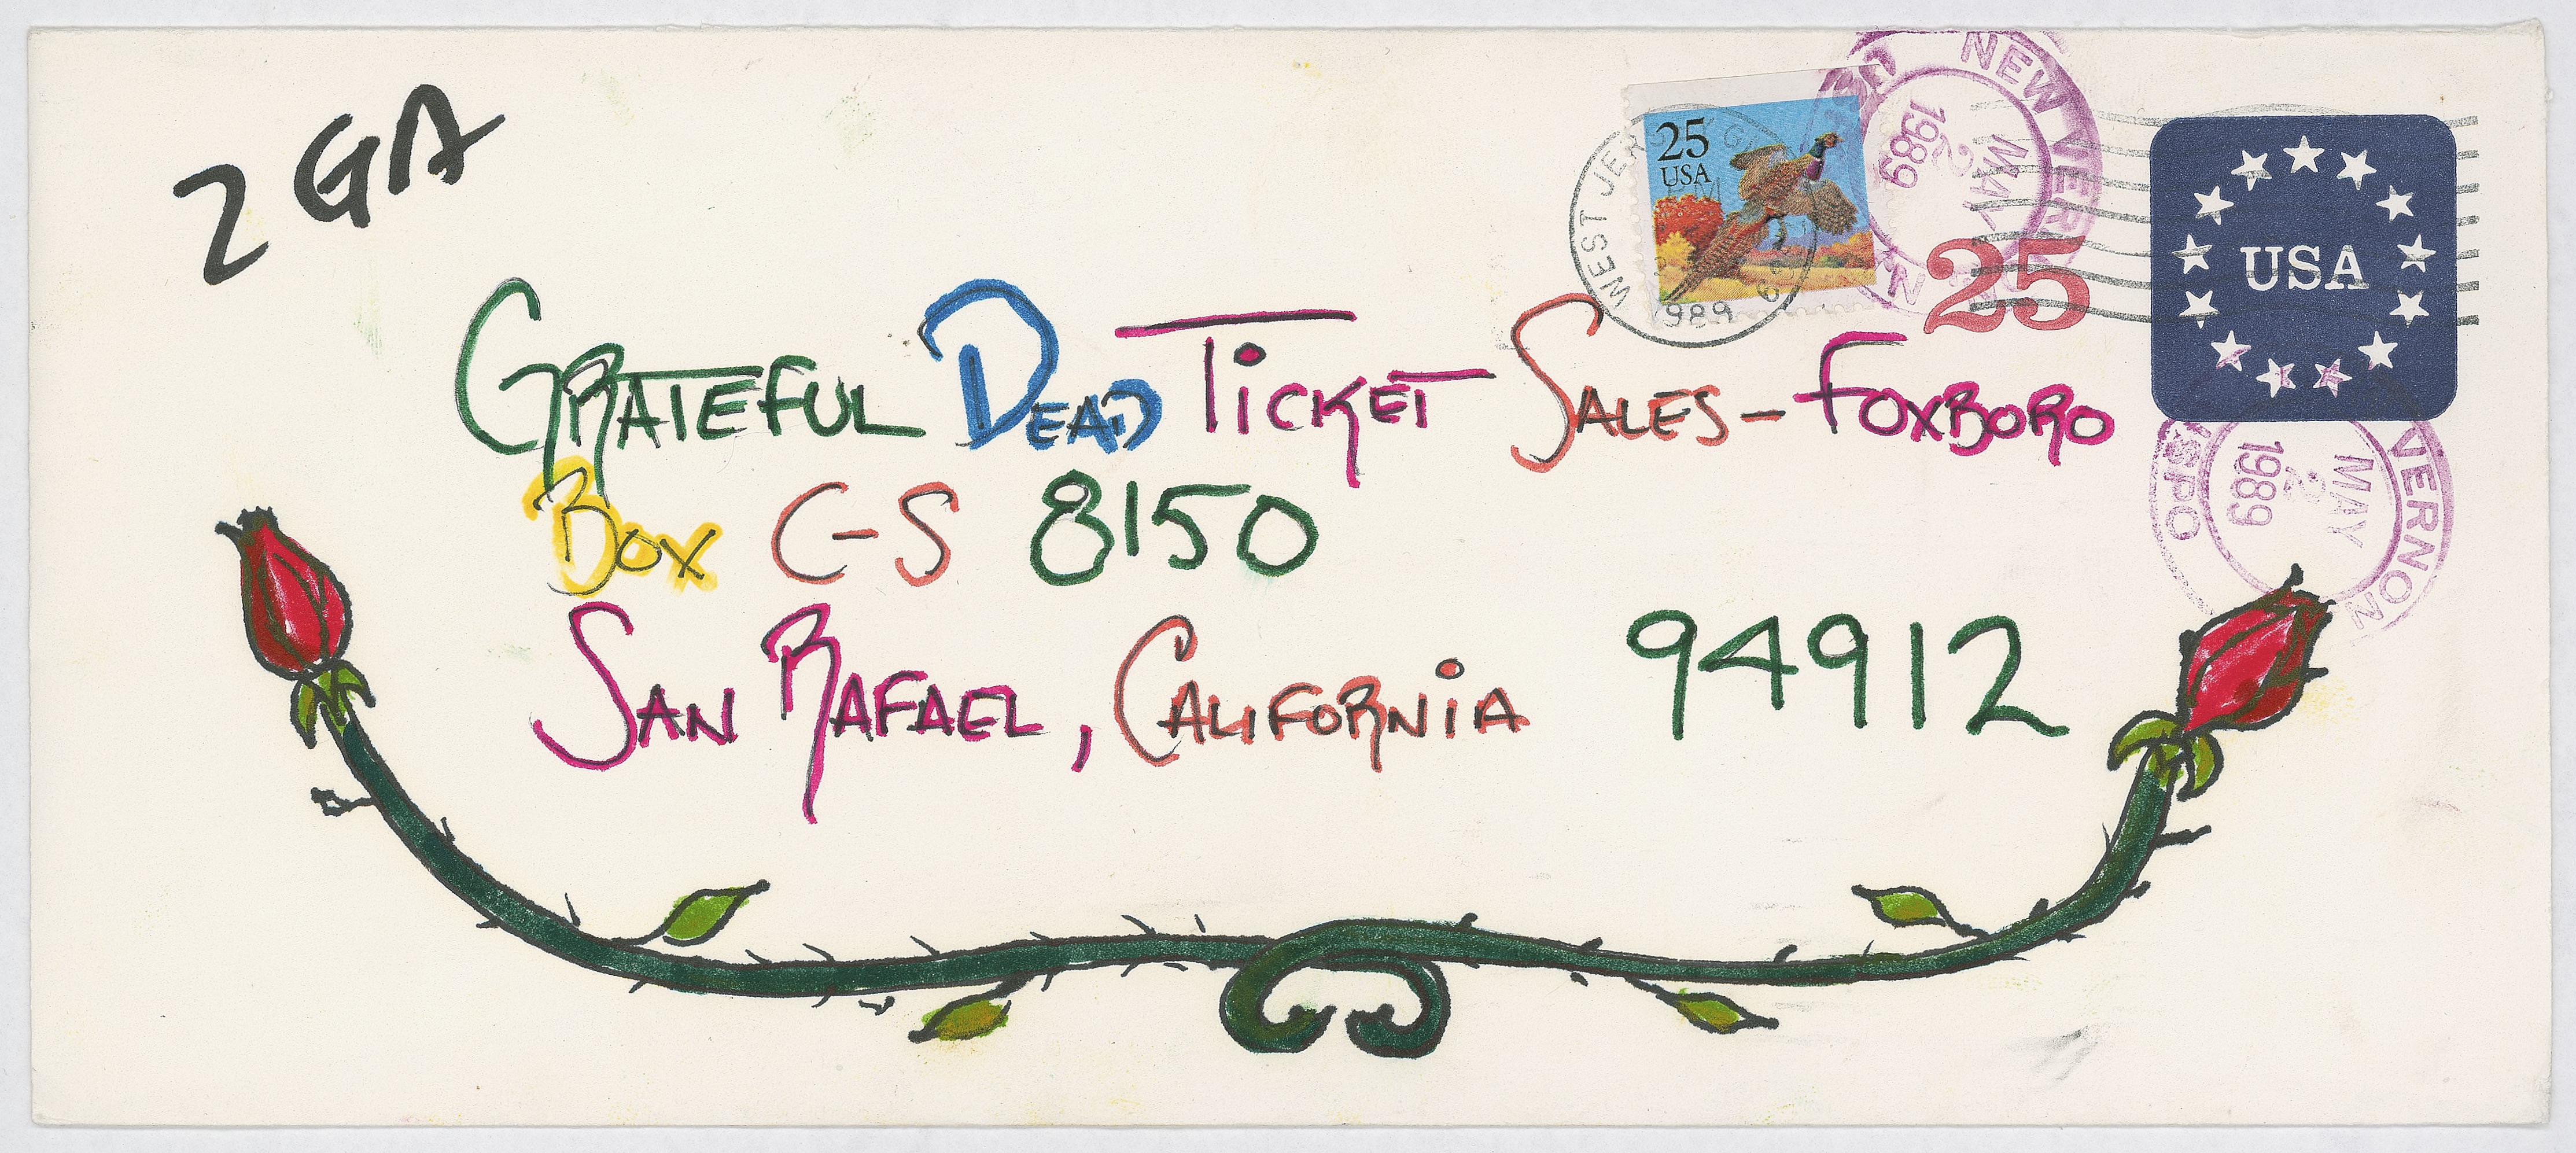 2 GA
25
USA
WEST JERS
1989
NEW VERNON
MAY
2
1989
25
USA
GRATEFUL DEAD TiCKET SALES - FOXBORO
BOX C-S 8150
SAN RAFAEL, CALIFORNiA 94912
VERNON
MAY
2
1989
SPO